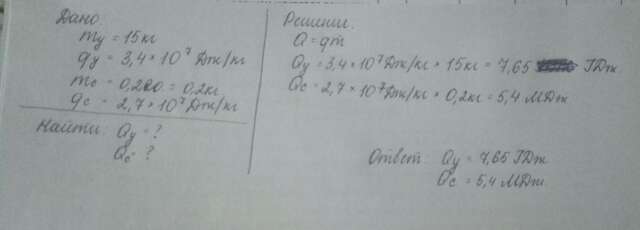 Дано:
mу = 15 кг
qу = 3,4 * 10⁷ Дж/кг
mс = 0,200 = 0,2 кг
qс = 2,7 * 10⁷ Дж/кг
Найти: Qу = ?
Qс = ?
Решение:
Q = qm
Qу = 3,4 * 10⁷ Дж/кг * 15 кг = 7,65 ГДж.
Qс = 2,7 * 10⁷ Дж/кг * 0,2 кг = 5,4 МДж
Ответ: Qу = 7,65 ГДж
Qс = 5,4 МДж.